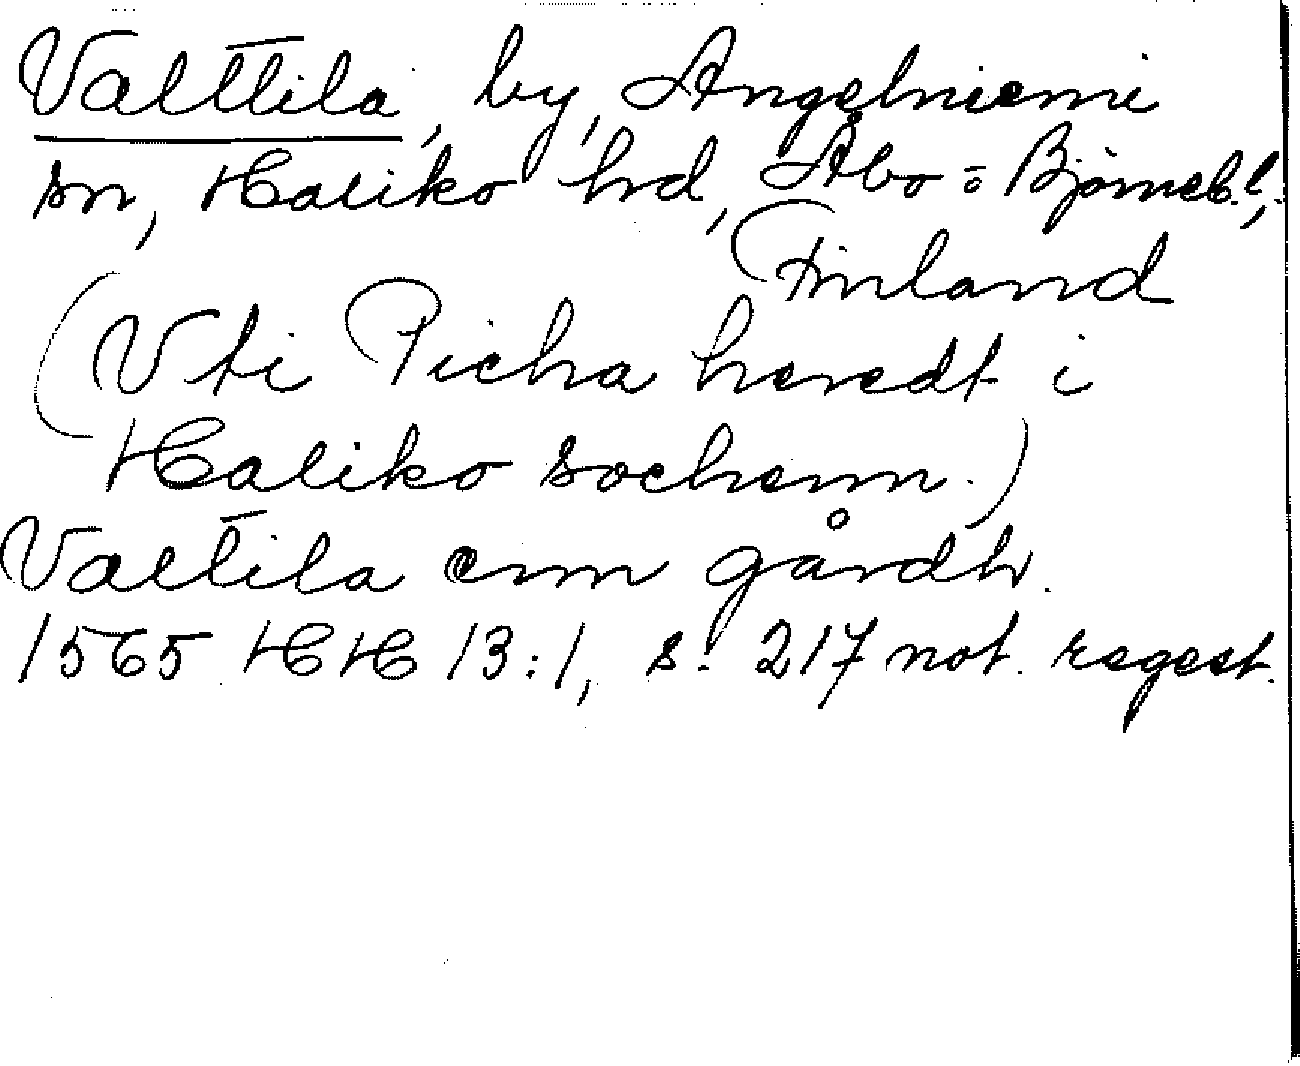 Valttila, by, Angelniemi
sn, Haliko hd, Åbo o Björneb. l.,
Finland
(Vti Picha heredt i
Haliko sochenn.)
Valtila enn gårdh.
1565 HH 13:1, s. 217 not. regest.